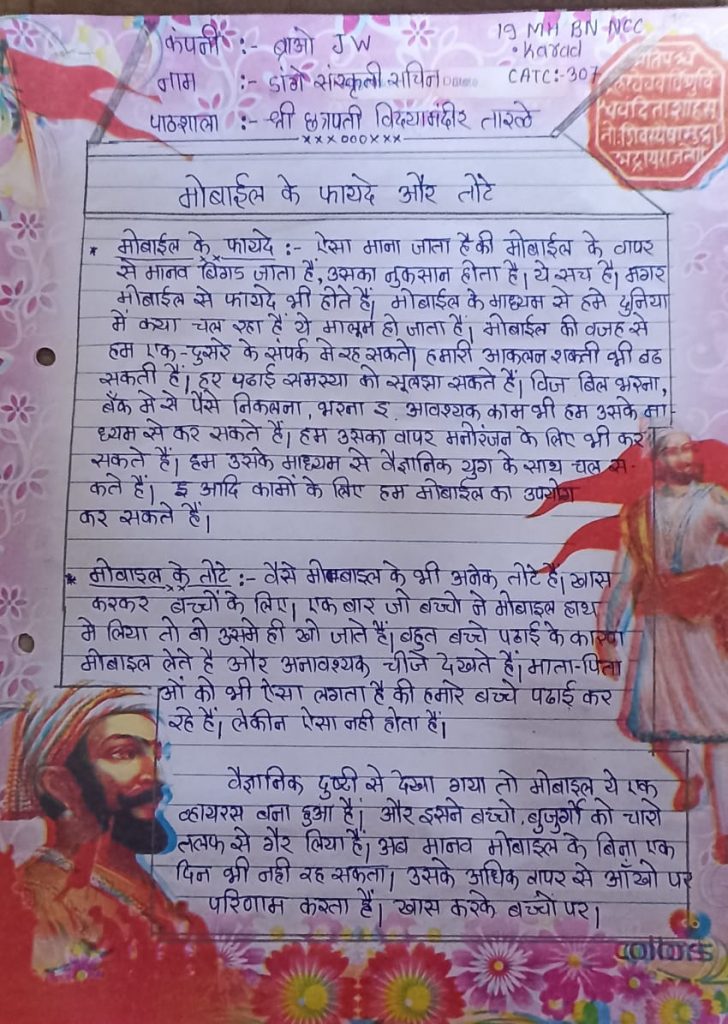 कंपनी :- ब्राओ JW
19 MH BN NCC
Karad
नाम :- डांगे संस्कृती सचिन
CATC:-307
पाठशाला :- श्री छत्रपती विद्यामंदीर तारळे
×××000×××
मोबाईल के फायदे और तोटे
* मोबाईल के फायदे :- ऐसा माना जाता है की मोबाईल के वापर
से मानव बिगड जाता हैं, उसका नुकसान होता है। ये सच है। मगर
मोबाईल से फायदे भी होते हैं। मोबाईल के माध्यम से हमे दुनिया
में क्या चल रहा हैं ये मालूम हो जाता हैं। मोबाईल की वजह से
हम एक-दुसरे के संपर्क मे रह सकते। हमारी आकलन शक्ती भी बढ
सकती हैं। हर पढाई समस्या को सूलझा सकते हैं। विज बिल भरना,
बँक मे से पैसे निकलना, भरना इ. आवश्यक काम भी हम उसके मा-
ध्यम से कर सकते हैं। हम उसका वापर मनोरंजन के लिए भी कर
सकते हैं। हम उसके माध्यम से वैज्ञानिक युग के साथ चल स-
कते हैं। इ आदि कामों के लिए हम मोबाईल का उपयोग
कर सकते हैं।
* मोबाइल के तोटे :- वैसे मोबाइल के भी अनेक तोटे हैं। खास
करकर बच्चों के लिए। एक बार जो बच्चो ने मोबाइल हाथ
मे लिया तो वो उसमे ही खो जाते हैं। बहुत बच्चे पढाई के कारण
मोबाइल लेते है और अनावश्यक चीजे देखते हैं। माता-पिता
ओं को भी ऐसा लगता है की हमारे बच्चे पढाई कर
रहे हैं। लेकीन ऐसा नही होता हैं।
वैज्ञानिक दृष्टी से देखा गया तो मोबाइल ये एक
व्हायरस बना हुआ हैं। और इसने बच्चो, बुजुर्गो को चारो
तलफ से गैर लिया हैं। अब मानव मोबाईल के बिना एक
दिन भी नही रह सकता। उसके अधिक वापर से आँखो पर
परिणाम करता हैं। खास करके बच्चों पर।
colours